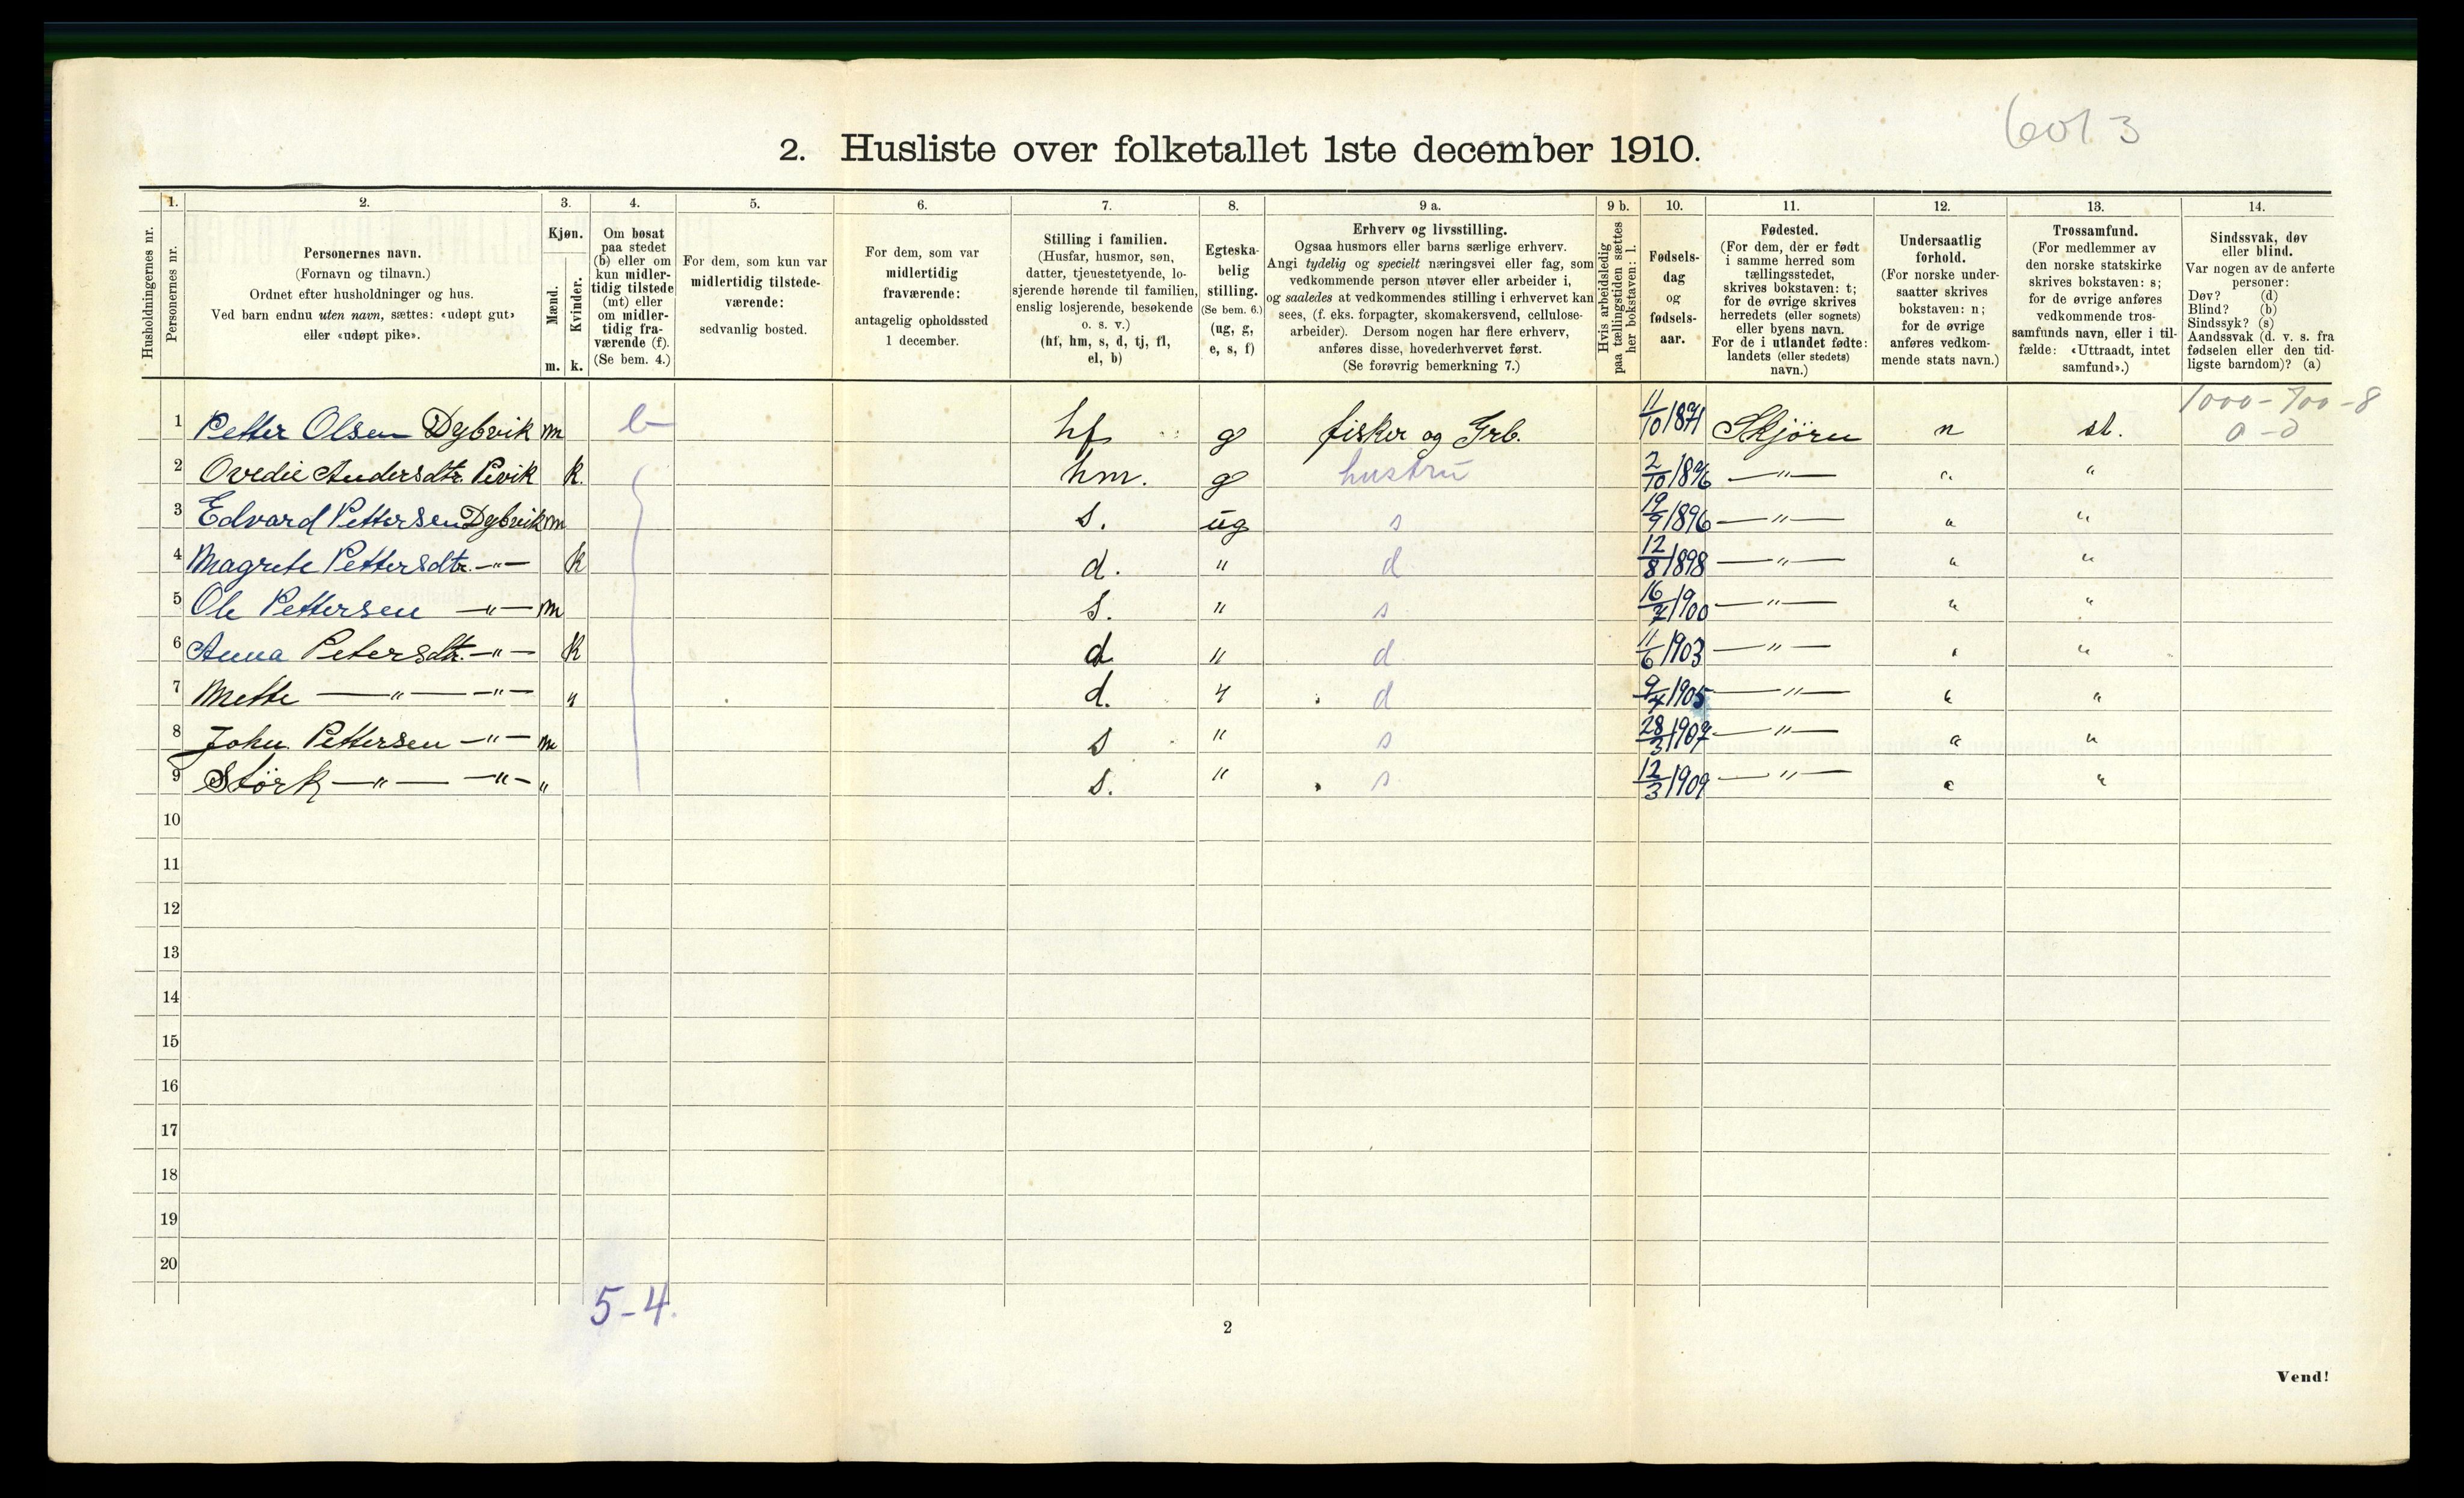 6013
2. Husliste over folketallet 1ste december 1910.
Husholdningernes nr.
1. Personernes nr.
2. Personernes navn.
(Fornavn og tilnavn.)
Ordnet efter husholdninger og hus.
Ved barn endnu uten navn, sættes: «udøpt gut»
eller «udøpt pike».
3. Kjøn.
Mænd. m.
Kvinder. k.
4. Om bosat
paa stedet
(b) eller om
kun midler-
tidig tilstede
(mt) eller
om midler-
tidig fra-
værende (f).
(Se bem. 4.)
5. For dem, som kun var
midlertidig tilstede-
værende:
sedvanlig bosted.
6. For dem, som var
midlertidig
fraværende:
antagelig opholdssted
1 december.
7. Stilling i familien.
(Husfar, husmor, søn,
datter, tjenestetyende, lo-
sjerende hørende til familien,
enslig losjerende, besøkende
o. s. v.)
(hf, hm, s, d, tj, fl,
el, b)
8. Egteska-
belig
stilling.
(Se bem. 6.)
(ug, g,
e, s, f)
9 a. Erhverv og livsstilling.
Ogsaa husmors eller barns særlige erhverv.
Angi tydelig og specielt næringsvei eller fag, som
vedkommende person utøver eller arbeider i,
og saaledes at vedkommendes stilling i erhvervet kan
sees, (f. eks. forpagter, skomakersvend, cellulose-
arbeider). Dersom nogen har flere erhverv,
anføres disse, hovederhvervet først.
(Se forøvrig bemerkning 7.)
9 b. Hvis arbeidsledig
paa tællingstiden sættes
her bokstaven: l.
10. Fødsels-
dag
og
fødsels-
aar.
11. Fødested.
(For dem, der er født
i samme herred som
tællingsstedet,
skrives bokstaven: t;
for de øvrige skrives
herredets (eller sognets)
eller byens navn.
For de i utlandet fødte:
landets (eller stedets)
navn.)
12. Undersaatlig
forhold.
(For norske under-
saatter skrives
bokstaven: n;
for de øvrige
anføres vedkom-
mende stats navn.)
13. Trossamfund.
(For medlemmer av
den norske statskirke
skrives bokstaven: s;
for de øvrige anføres
vedkommende tros-
samfunds navn, eller i til-
fælde: «Uttraadt, intet
samfund».)
14. Sindssvak, døv
eller blind.
Var nogen av de anførte
personer:
Døv? (d)
Blind? (b)
Sindssyk? (s)
Aandssvak (d. v. s. fra
fødselen eller den tid-
ligste barndom)? (a)
1000-700-8
1 Petter Olsen Dybvik m b hf g fisker og Grb. 11/10 1871 Skjörn n st. 0-0
2 Ovedie Andersdtr. Pevik k. hm. g hustru 2/10 1876 —"— " "
3 Edvard Pettersen Dybvik m s. ug s 19/9 1896 —"— " "
4 Magrete Pettersdtr. —"— k d. " d 12/8 1898 —"— " "
5 Ole Pettersen —"— m s. " s 16/7 1900 —"— " "
6 Anna Petersdtr. —"— k d " d 11/6 1903 —"— " "
7 Mette —"— —"— " d. " d 9/4 1905 —"— " "
8 John Pettersen —"— m s " s 28/3 1907 —"— " "
9 Störk —"— —"— " s. " s 12/3 1909 —"— " "
10
11
12
13
14
15
16
17
18
19
20
5-4.
2
Vend!